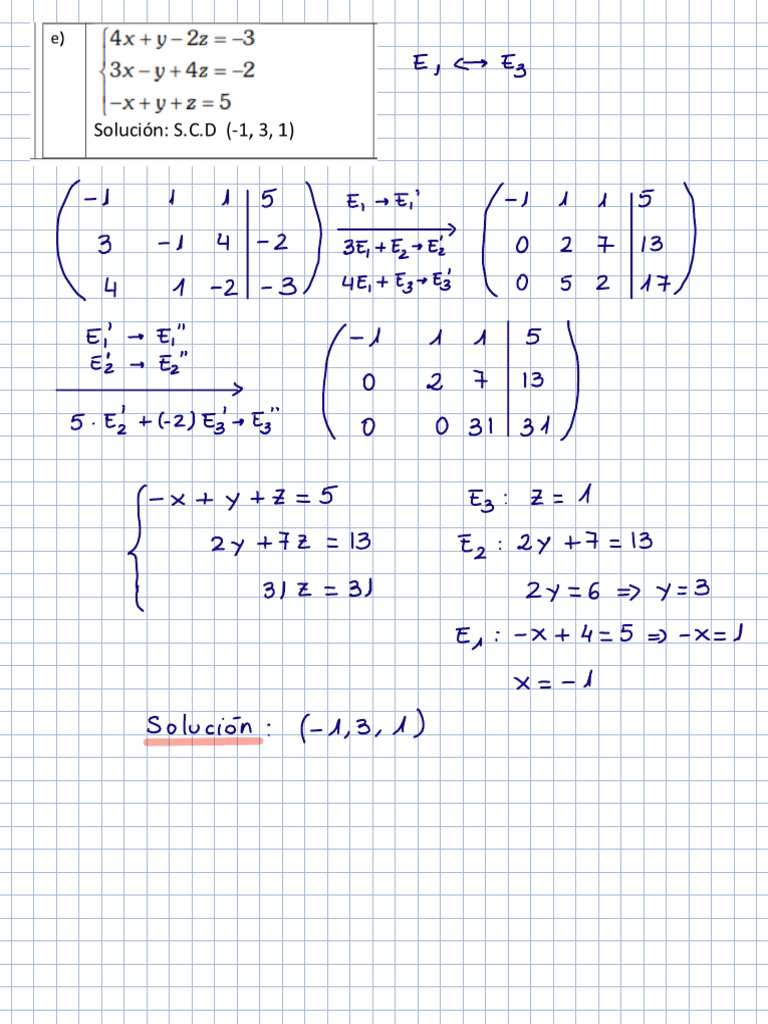 e) 4x + y – 2z = –3
3x – y + 4z = –2
–x + y + z = 5
Solución: S.C.D (-1, 3, 1)
E₁ ↔ E₃
-1 1 1 | 5
3 -1 4 | -2
4 1 -2 | -3
E₁ → E₁'
3E₁ + E₂ → E₂'
4E₁ + E₃ → E₃'
-1 1 1 | 5
0 2 7 | 13
0 5 2 | 17
E₁' → E₁''
E₂' → E₂''
5 · E₂' + (-2) E₃' → E₃''
-1 1 1 | 5
0 2 7 | 13
0 0 31 | 31
-x + y + z = 5
2y + 7z = 13
31 z = 31
E₃ : z = 1
E₂ : 2y + 7 = 13
2y = 6 ⇒ y = 3
E₁ : -x + 4 = 5 ⇒ -x = 1
x = -1
Solución : (-1, 3, 1)